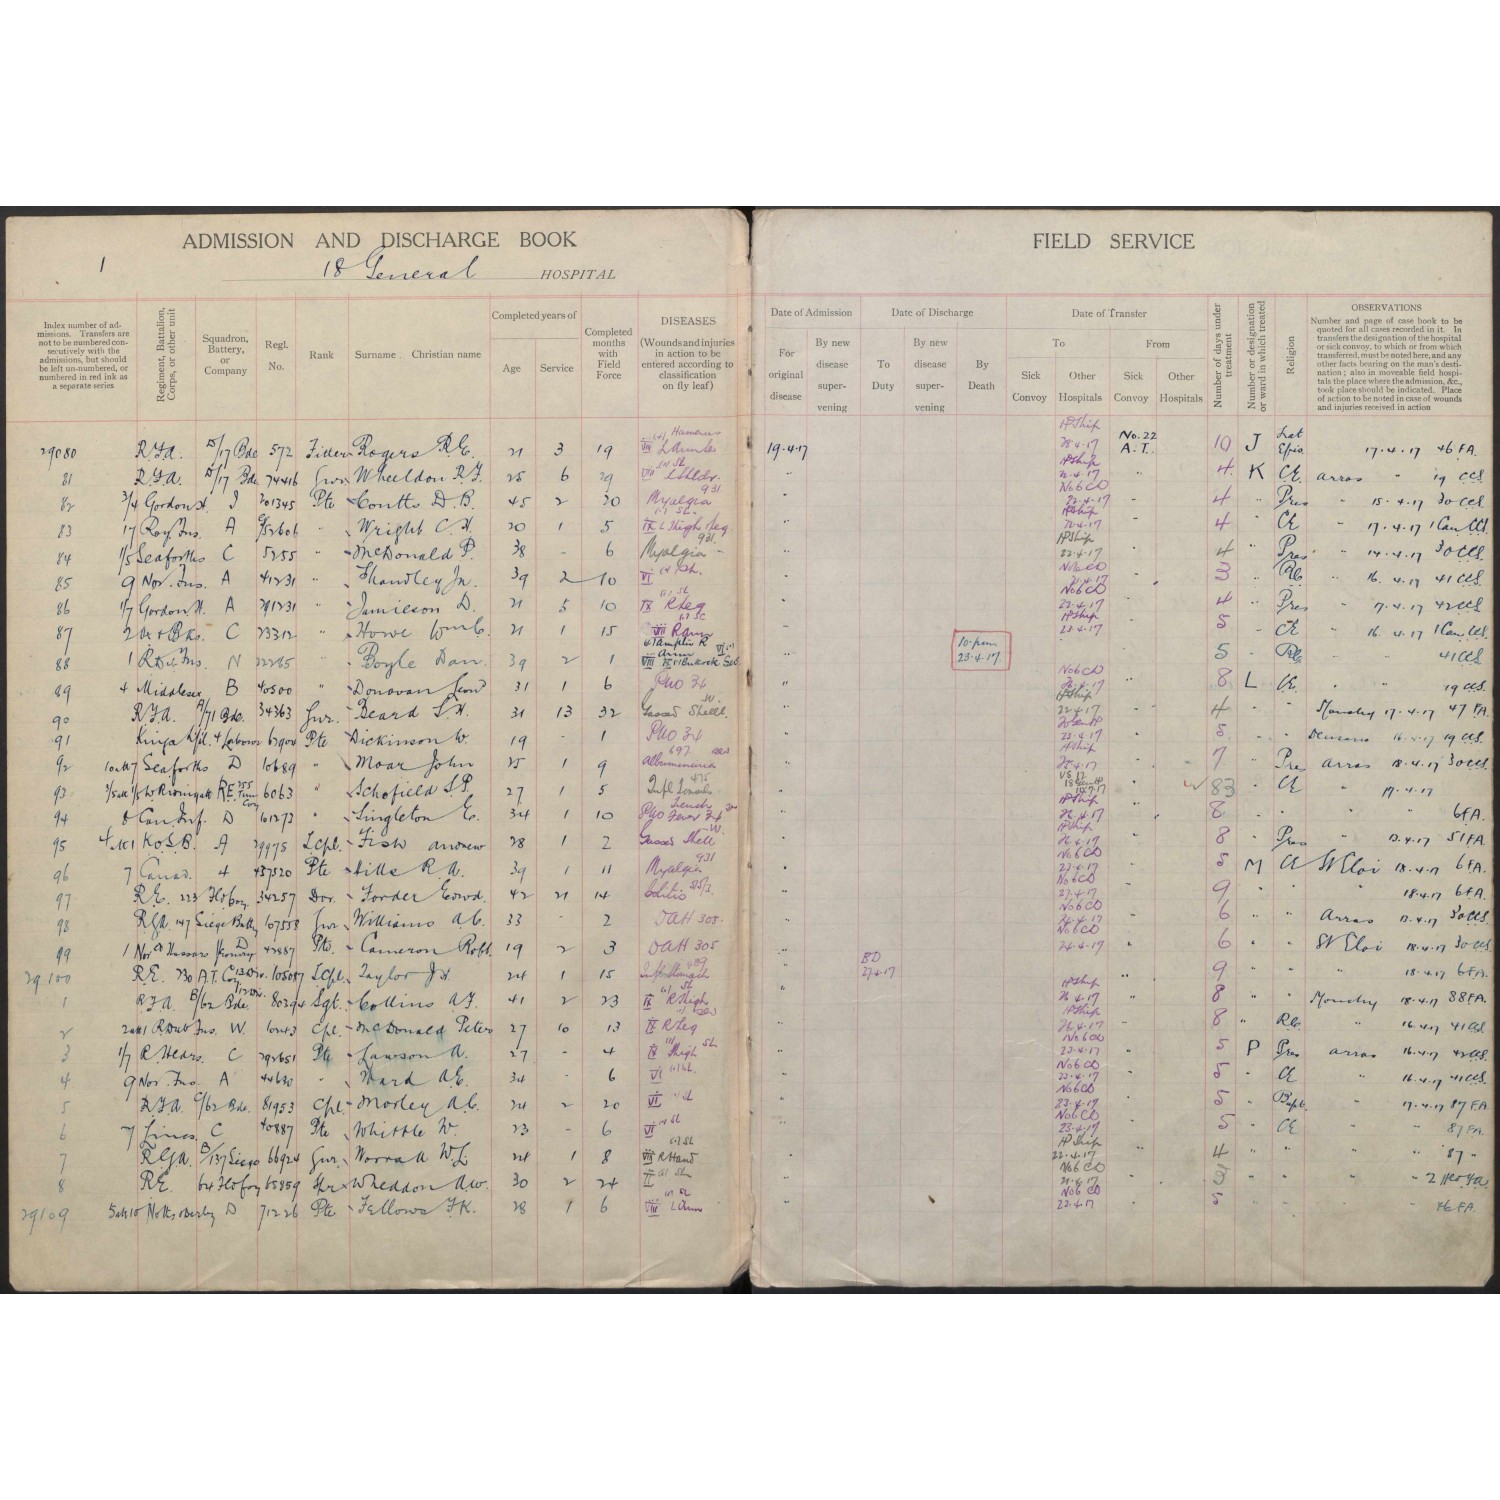 ADMISSION AND DISCHARGE BOOK
1
18 General HOSPITAL
FIELD SERVICE
Index number of admissions. Transfers are not to be numbered consecutively with the admissions, but should be left un-numbered, or numbered in red ink as a separate series
Regiment, Battalion, Corps, or other unit
Squadron, Battery, or Company
Regl. No.
Rank
Surname Christian name
Completed years of
Age
Service
Completed months with Field Force
DISEASES
(Wounds and injuries in action to be entered according to classification on fly leaf)
Date of Admission
For original disease
By new disease supervening
Date of Discharge
To Duty
By new disease supervening
By Death
Date of Transfer
To
Sick Convoy
Other Hospitals
From
Sick Convoy
Other Hospitals
Number of days under treatment
Number or designation or ward in which treated
Religion
OBSERVATIONS
Number and page of case book to be quoted for all cases recorded in it. In transfers the designation of the hospital or sick convoy, to which or from which transferred, must be noted here, and any other facts bearing on the man's destination; also in moveable field hospitals the place where the admission, &c., took place should be indicated. Place of action to be noted in case of wounds and injuries received in action
29080 R.F.A. D/17 Bde 572 Fitter Rogers R.E. 21 3 19 19.4.17 H Ship No. 22 A.T. 10 J 17.4.17 46 FA
81 R.F.A. D/17 Bde 74416 Gnr Wheeldon R.F. 25 6 29 " H Ship 4 K CE Arras " 19 CCS
82 3/4 Gordon H. 201345 Pte Coutts D.B. 45 2 20 Myalgia 931 " No 6 CD 22.4.17 4 " Pres " 15.4.17 30 CCS
83 17 Roy. Fus. A " Wright C.H. 20 1 5 IX L Thigh Leg " H Ship 4 " CE " 17.4.17 1 Can CCS
84 1/5 Seaforths C 5255 " McDonald P. 38 - 6 Myalgia 931 " H Ship 22.4.17 4 " Pres " 14.4.17 30 CCS
85 9 Nor. Fus. A 41231 " Handley Jn. 39 2 10 VI " No 6 CD 21.4.17 3 " RC " 16.4.17 41 CCS
86 1/7 Gordon H. A 291231 " Jamieson D. 21 5 10 IX R Leg " No 6 CD 22.4.17 4 " Pres " 17.4.17 42 CCS
87 2 Ox & Bks. C 23312 " Howe Wm C. 21 1 15 VIII R arm " H Ship 23.4.17 5 " CE " 16.4.17 1 Can CCS
88 1 R Dub Fus. " Boyle Dan. 39 2 1 " 10-pm 23.4.17 5 " RC 41 CCS
89 4 Middlesex B 40500 " Donovan 31 1 6 PUO 34 " No 6 CD 8 L CE " " 19 CCS
90 R.F.A. A/71 Bde. 34363 Gnr. Beard S.H. 31 13 32 Gassed Shell W. " H Ship 22.4.17 4 " " Monchy 17.4.17 47 FA
91 Kings Labour Pte Dickinson W. 19 - 1 PUO 34 " 23.4.17 5 " " 16.4.17 19 CCS
92 Seaforths D 10689 " Moar John 25 1 9 Albuminuria 697 " H Ship 7 " Pres Arras 18.4.17 30 CCS
93 RE 6063 " Schofield S.P. 27 1 5 83 " CE " 17.4.17
94 Can. Inf. D " Singleton E. 34 1 10 PUO Trench Fever 34 " H Ship 26.4.17 8 " " " 6 FA.
95 K.O.S.B. A 29975 L.Cpl. Fish Andrew 28 1 2 Gassed Shell W. " H Ship 26.4.17 8 " Pres " 51 FA
96 7 Canad. 4 437520 Pte Hills R.A. 39 1 11 Myalgia 931 " No 6 CD 23.4.17 5 M CE St Eloi 18.4.17 6 FA
97 R.E. 223 34257 Dvr. Forder Edwd. 42 21 14 " No 6 CD 27.4.17 9 " " " 18.4.17 6 FA.
98 R.G.A. 147 Siege Batty 107558 Gnr Williams A.C. 33 - 2 DAH 305 " No 6 CD 24.4.17 6 " " Arras 30 CCS
99 1 42887 Pte. Cameron Robt. 19 2 3 DAH 305 " No 6 CD 24.4.17 6 " " St Eloi 18.4.17 30 CCS
29100 R.E. 230 A.T. Coy 105087 L.Cpl. Taylor Jn 24 1 15 " BD 27.4.17 9 " " " 18.4.17 6 FA.
1 R.F.A. B/62 Bde. 80394 Sgt. Collins A.F. 41 2 23 IX R Thigh " H Ship 26.4.17 8 " " Monchy 18.4.17 88 FA.
2 R Dub Fus. W. 10243 Cpl. McDonald Peter 27 10 13 IX R Leg H Ship 26.4.17 8 " RC. " 16.4.17 41 CCS
3 1/7 C 292651 Pte Lawson A. 27 - 4 IX Thigh " No 6 CD 23.4.17 5 P Pres Arras 16.4.17 42 CCS
4 9 Nor. Fus. A " Ward A.E. 34 - 6 VI " No 6 CD 23.4.17 5 " CE " 16.4.17 41 CCS
5 R.F.A. C/62 Bde. 81953 Cpl. Morley A.C. 24 2 20 VI " No 6 CD 23.4.17 5 " Bapt. " 17.4.17 87 FA
6 7 Lincs. C 40887 Pte Whittle W. 23 - 6 VI No 6 CD 23.4.17 5 " CE " 87 FA.
7 R.G.A. B/137 Siege 66924 Gnr. W.L. 24 1 8 VIII R Hand " H Ship 22.4.17 4 " " " 87 "
8 R.E. 64 65859 Wheddon A.W. 30 2 24 II No 6 CD 21.4.17 3 " "
29109 Notts & Derby D 71226 Pte Fellows F.K. 28 1 6 VIII L Arm " No 6 CD 22.4.17 5 " 46 FA.